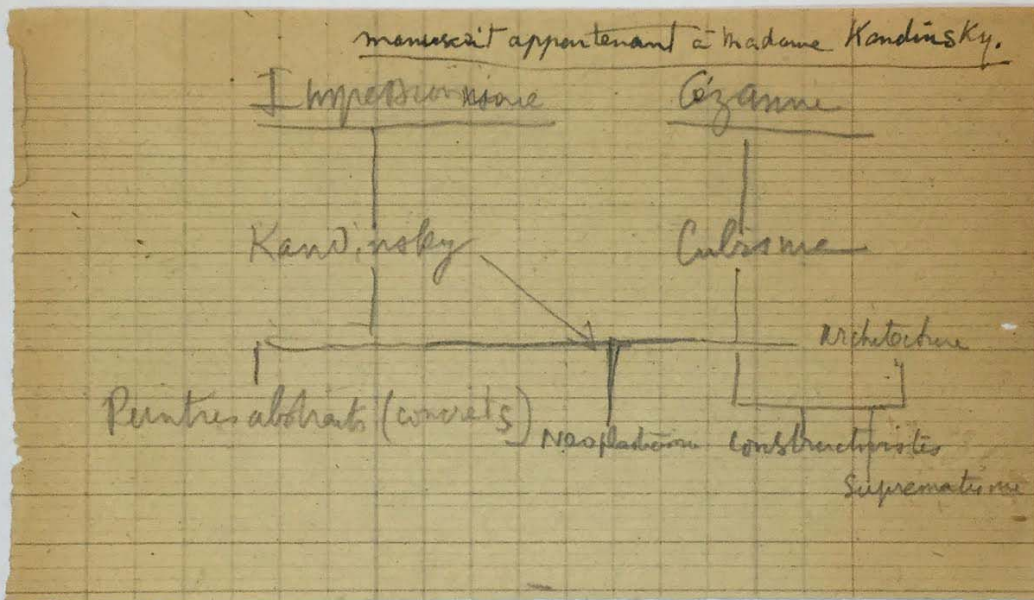 manuscrit appartenant à Madame Kandinsky.
Impressionnisme Cézanne
Kandinsky Cubisme
architecture
Peintres abstraits (concrets)
Neoplasticisme constructivistes
Suprematisme